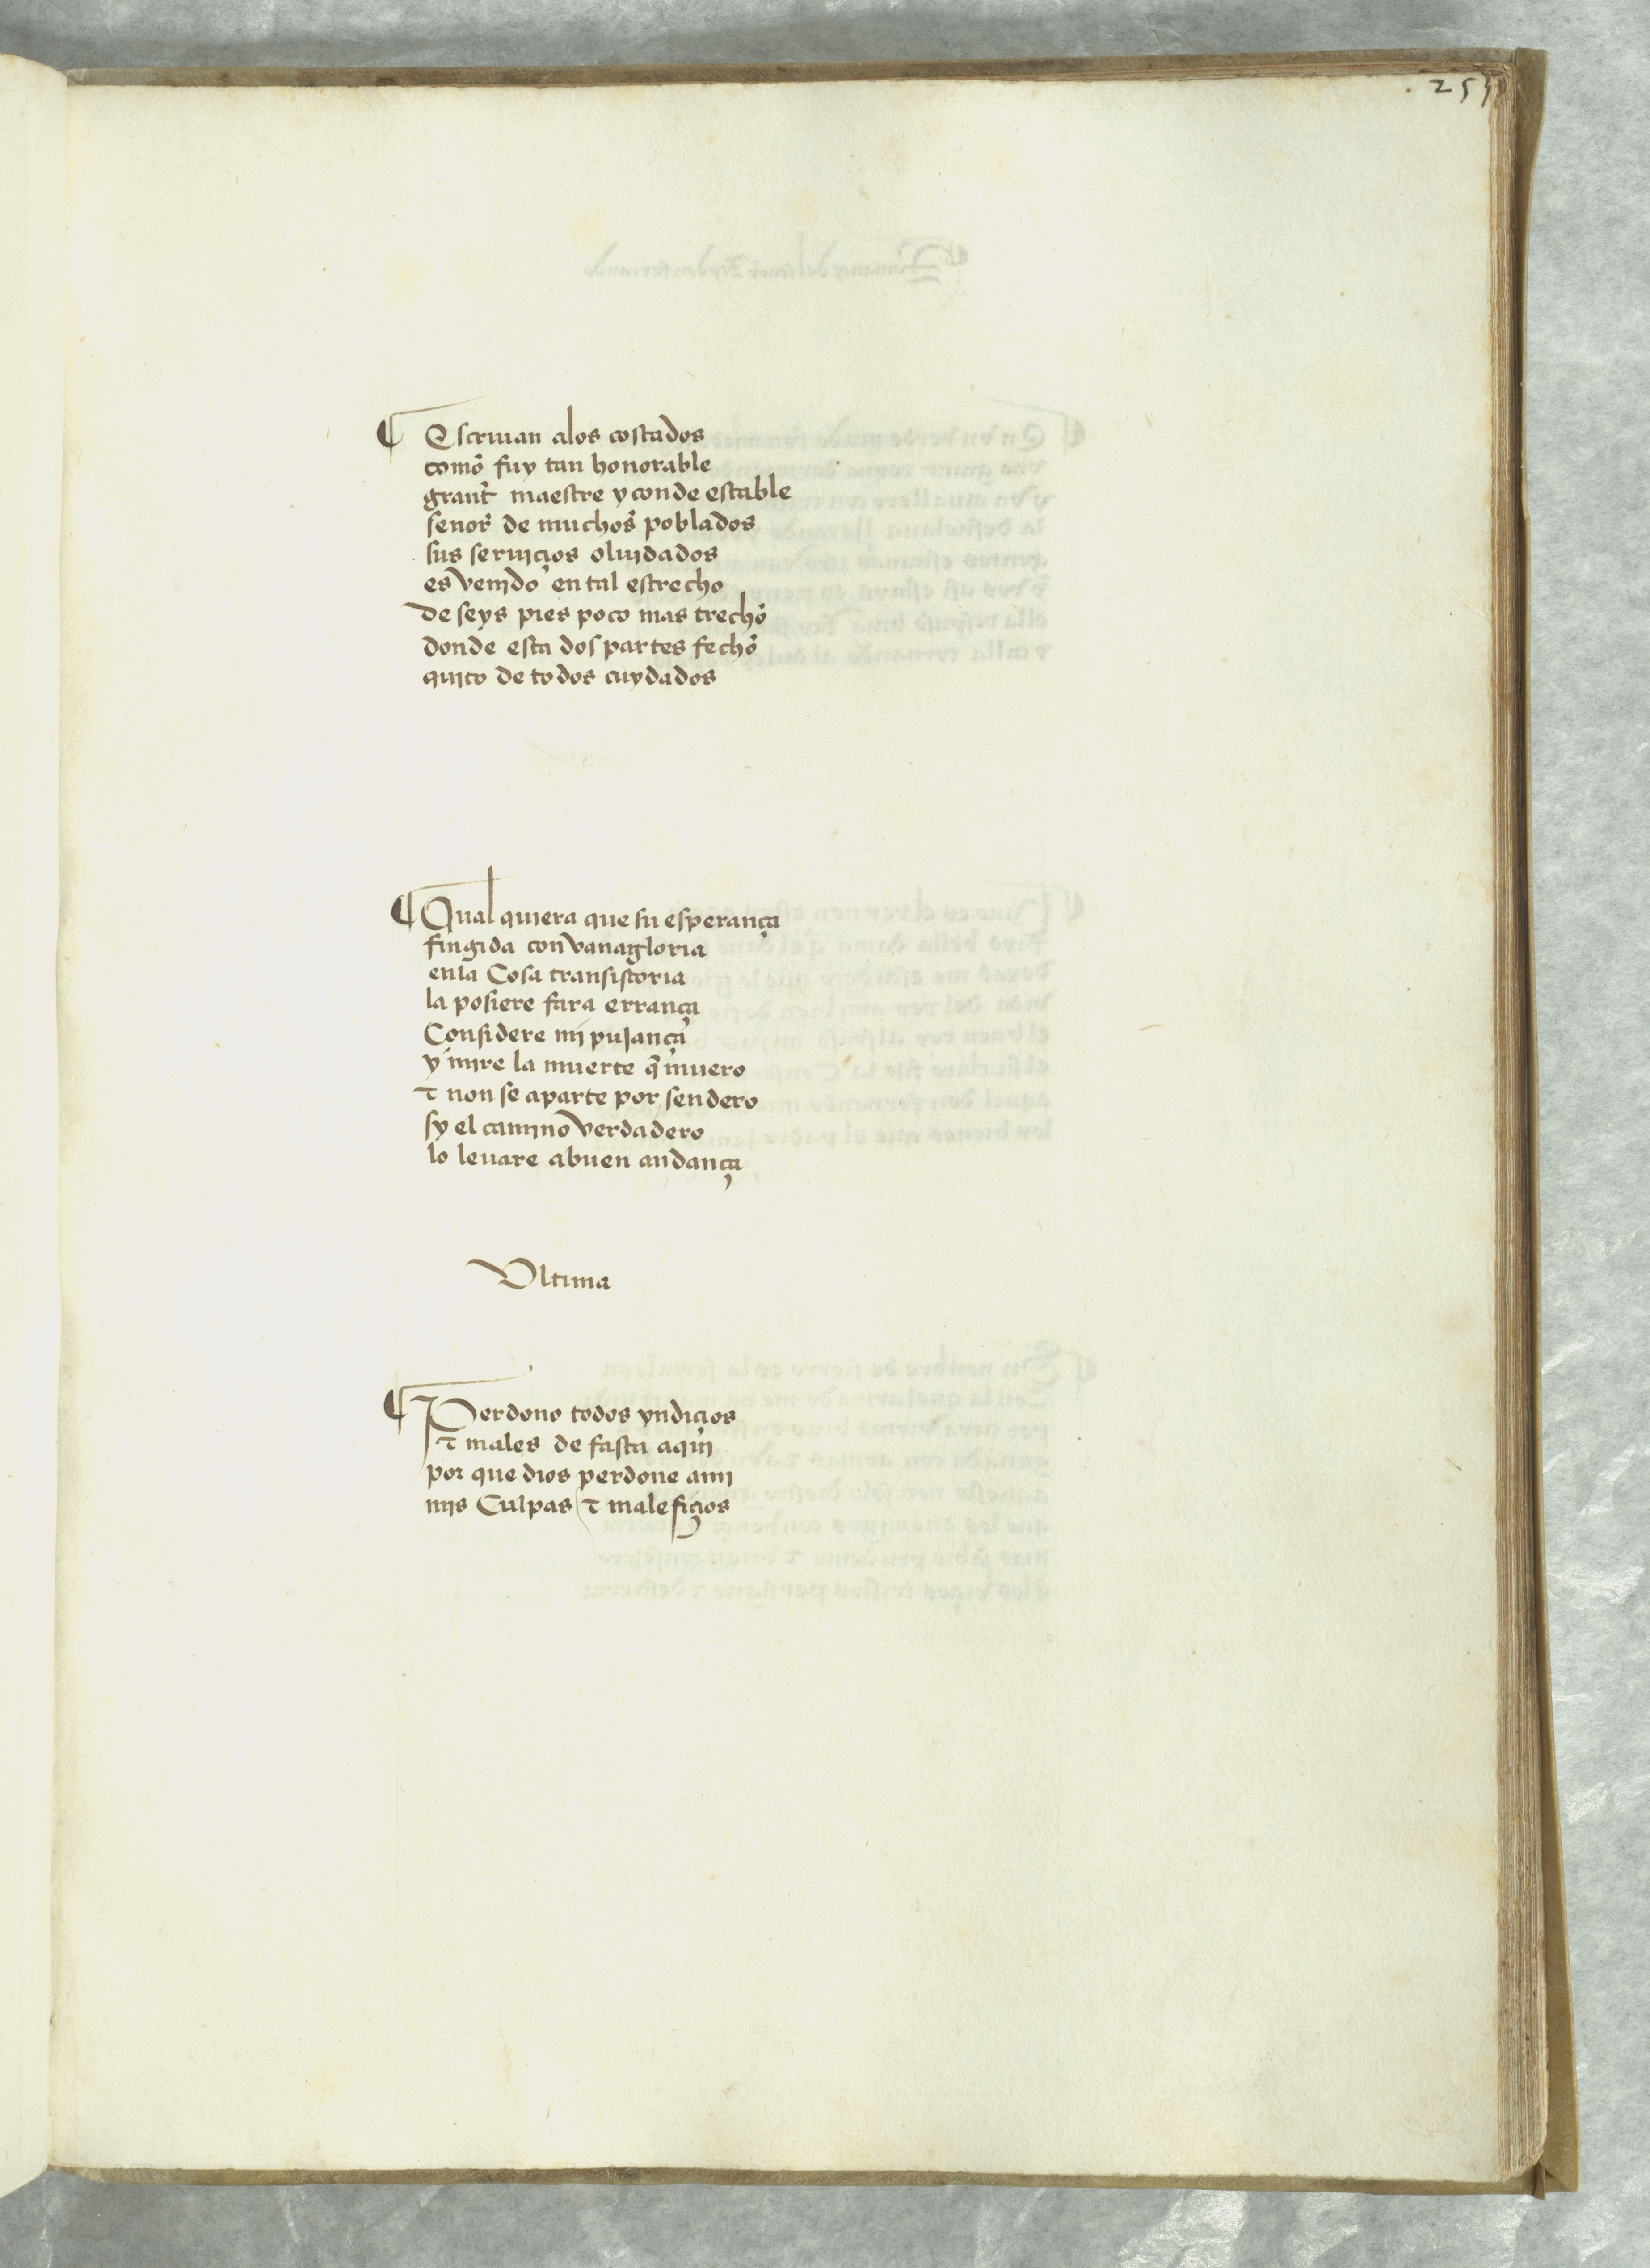 ¶ Escriuan alos costados
como fuy tan honorable
grant maestre y conde estable
senor de muchos poblados
sus seruiçios oluidados
es venido en tal estrecho
de seys pies poco mas trecho
donde esta dos partes fecho
quito de todos cuydados
¶ Qual quiera que su esperança
fingida con vanagloria
en la Cosa transistoria
la posiere fara errança
Considere mi pujança
y mire la muerte q̃ muero
τ non se aparte por sendero
sy el camino verdadero
lo leuare abuen andança
Vltima
¶ Perdono todos yndiçios
τ males de fasta aqui
por que dios perdone ami
mis Culpas τ malefiçios